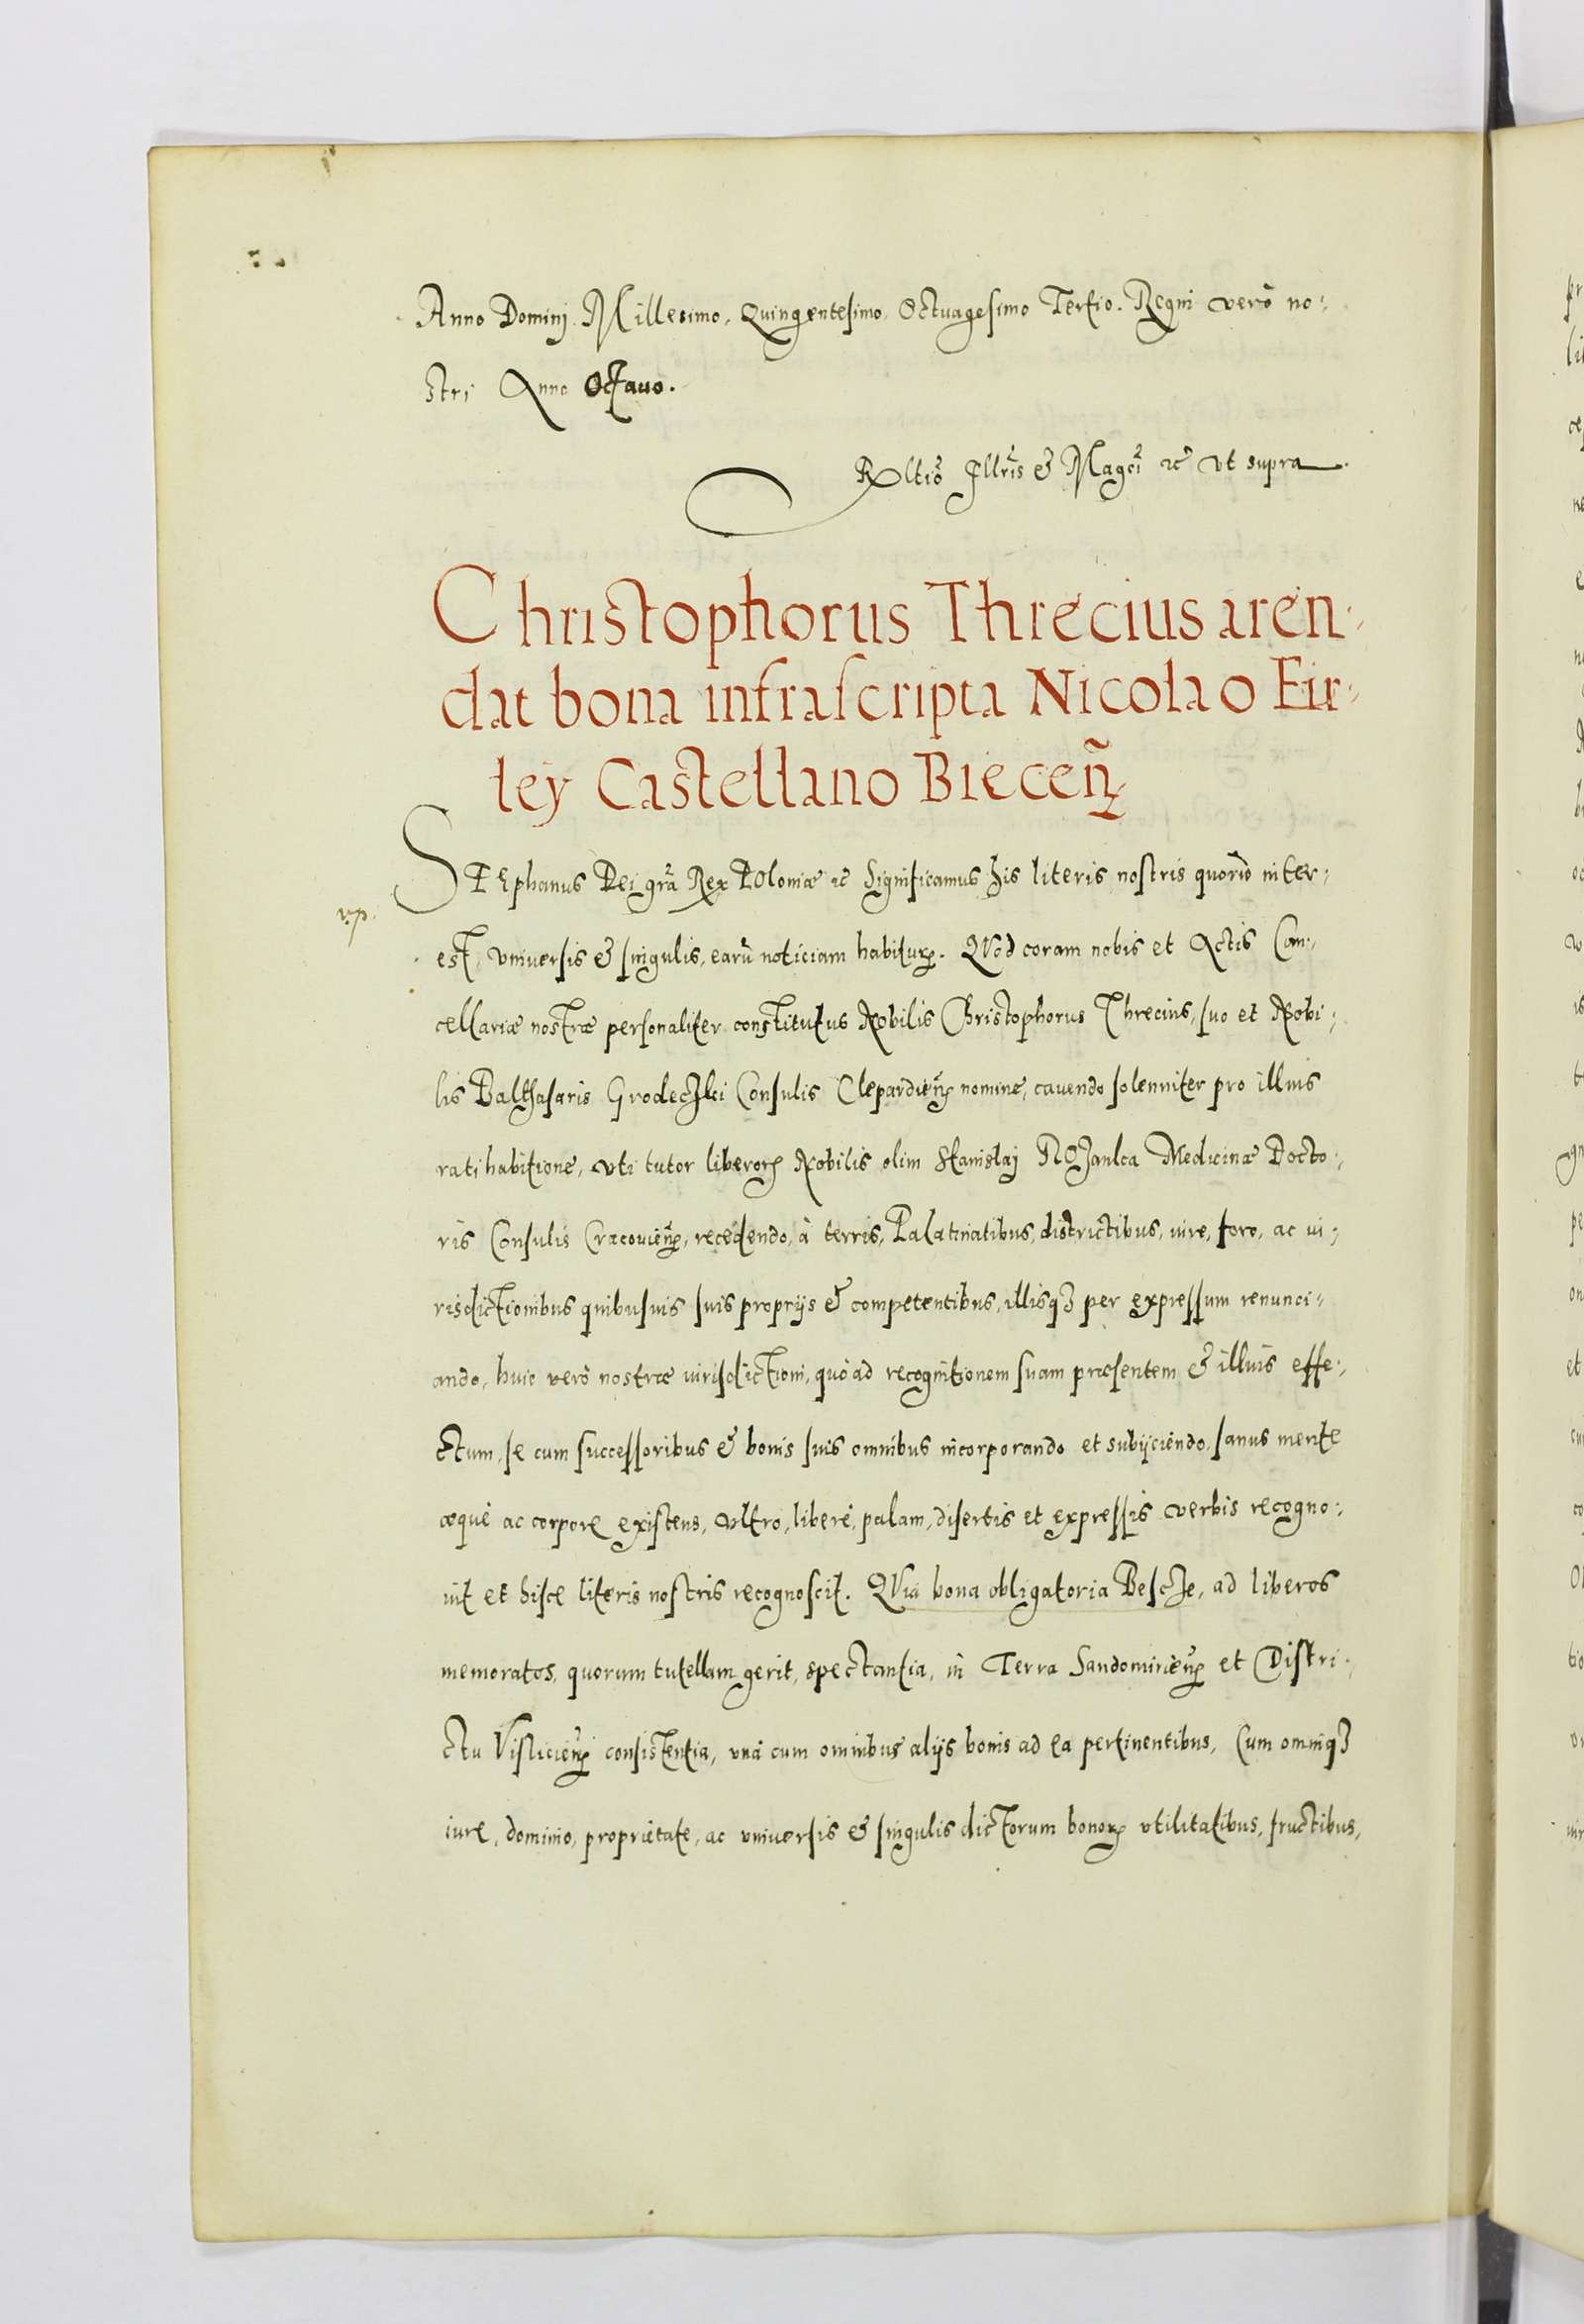 Anno Dominj Millesimo, Quingentesimo, Octuagesimo Tertio. Regni verò no:
stri Anno Octauo.
Rltio Illris & Magci ꝛc̃ vt supra
Christophorus Threcius aren-
dat bona infrascripta Nicolao Fir-
ley Castellano Biecen̄
STEphanus Dei gr̃a Rex POloniæ ꝛc̃ Significamus his literis nostris quorũ inter:
est, vniuersis & singulis, earũ noticiam habituꝝ. QVod coram nobis et Actis Can:
cellariæ nostræ personaliter constitutus Nobilis Christophorus Threcius, suo et Nobi:
lis Balthasaris Grodeczki Consulis Clepardieñ nomine, cauendo solenniter pro illius
ratihabitione, vti tutor liberoꝝ Nobilis olim Stanislaj ROzanka Medicinæ Docto:
ris Consulis Cracouieñ, recedendo, à terris, Palatinatibus, districtibus, iure, foro, ac iu:
risdictionibus quibusuis suis proprijs & competentibus, illisqȝ per expressum renunci:
ando, huic verò nostræ iurisdictioni, quò ad recognitionem suam præsentem & illius effe:
ctum, se cum successoribus & bonis suis omnibus incorporando et subijciendo, sanus mente
æquè ac corpore existens, vltro, liberè, palam, disertis et expressis verbis recogno:
uit et hisce literis nostris recognoscit. QVia bona obligatoria Bescze, ad liberos
memoratos, quorum tutellam gerit, spectantia, in Terra Sandomirieñ et Distri:
ctu Vislicieñ consistentia, vnà cum omnibus alijs bonis ad ea pertinentibus, Cum omniqȝ
iure, dominio, proprietate, ac vniuersis & singulis dictorum bonoꝝ vtilitatibus, fructibus,